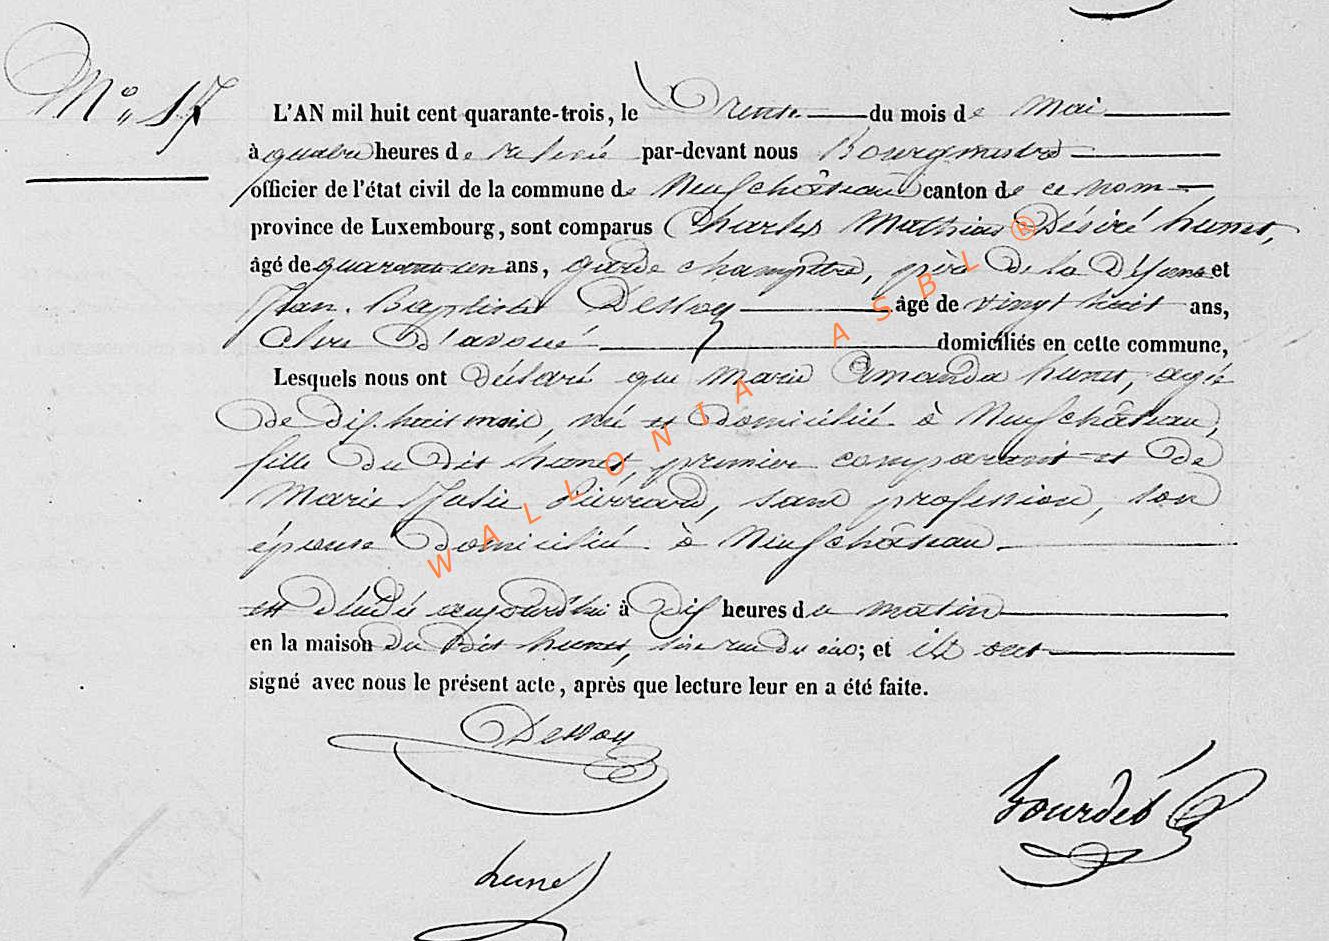 N° 17
L'AN mil huit cent quarante-trois, le Trente du mois de Mai
à quatre heures de relevée par-devant nous Bourgmestre
officier de l'état civil de la commune de Neufchâteau canton de ce nom
province de Luxembourg, sont comparus Charles Mathias Désiré hunet,
âgé de quarante un ans, garde champêtre, père de la Défunte et
Jean. Baptiste Dessoy âgé de vingt huit ans,
Clerc d'avoué domiciliés en cette commune,
Lesquels nous ont déclaré que Marie Amanda hunet, agée
De dix huit mois, née et domiciliée à Neufchâteau,
fille du dit hunet, premier comparant et de
Marie Pierrard, sans profession, son
épouse domiciliée à Neufchâteau
est décédée aujourd'hui à Dix heures du matin
en la maison du Dit hunet, sise rue du ; et ils ont
signé avec nous le présent acte, après que lecture leur en a été faite.
Dessoy
Bourdés
hunet
WALLONIA ASBL ®